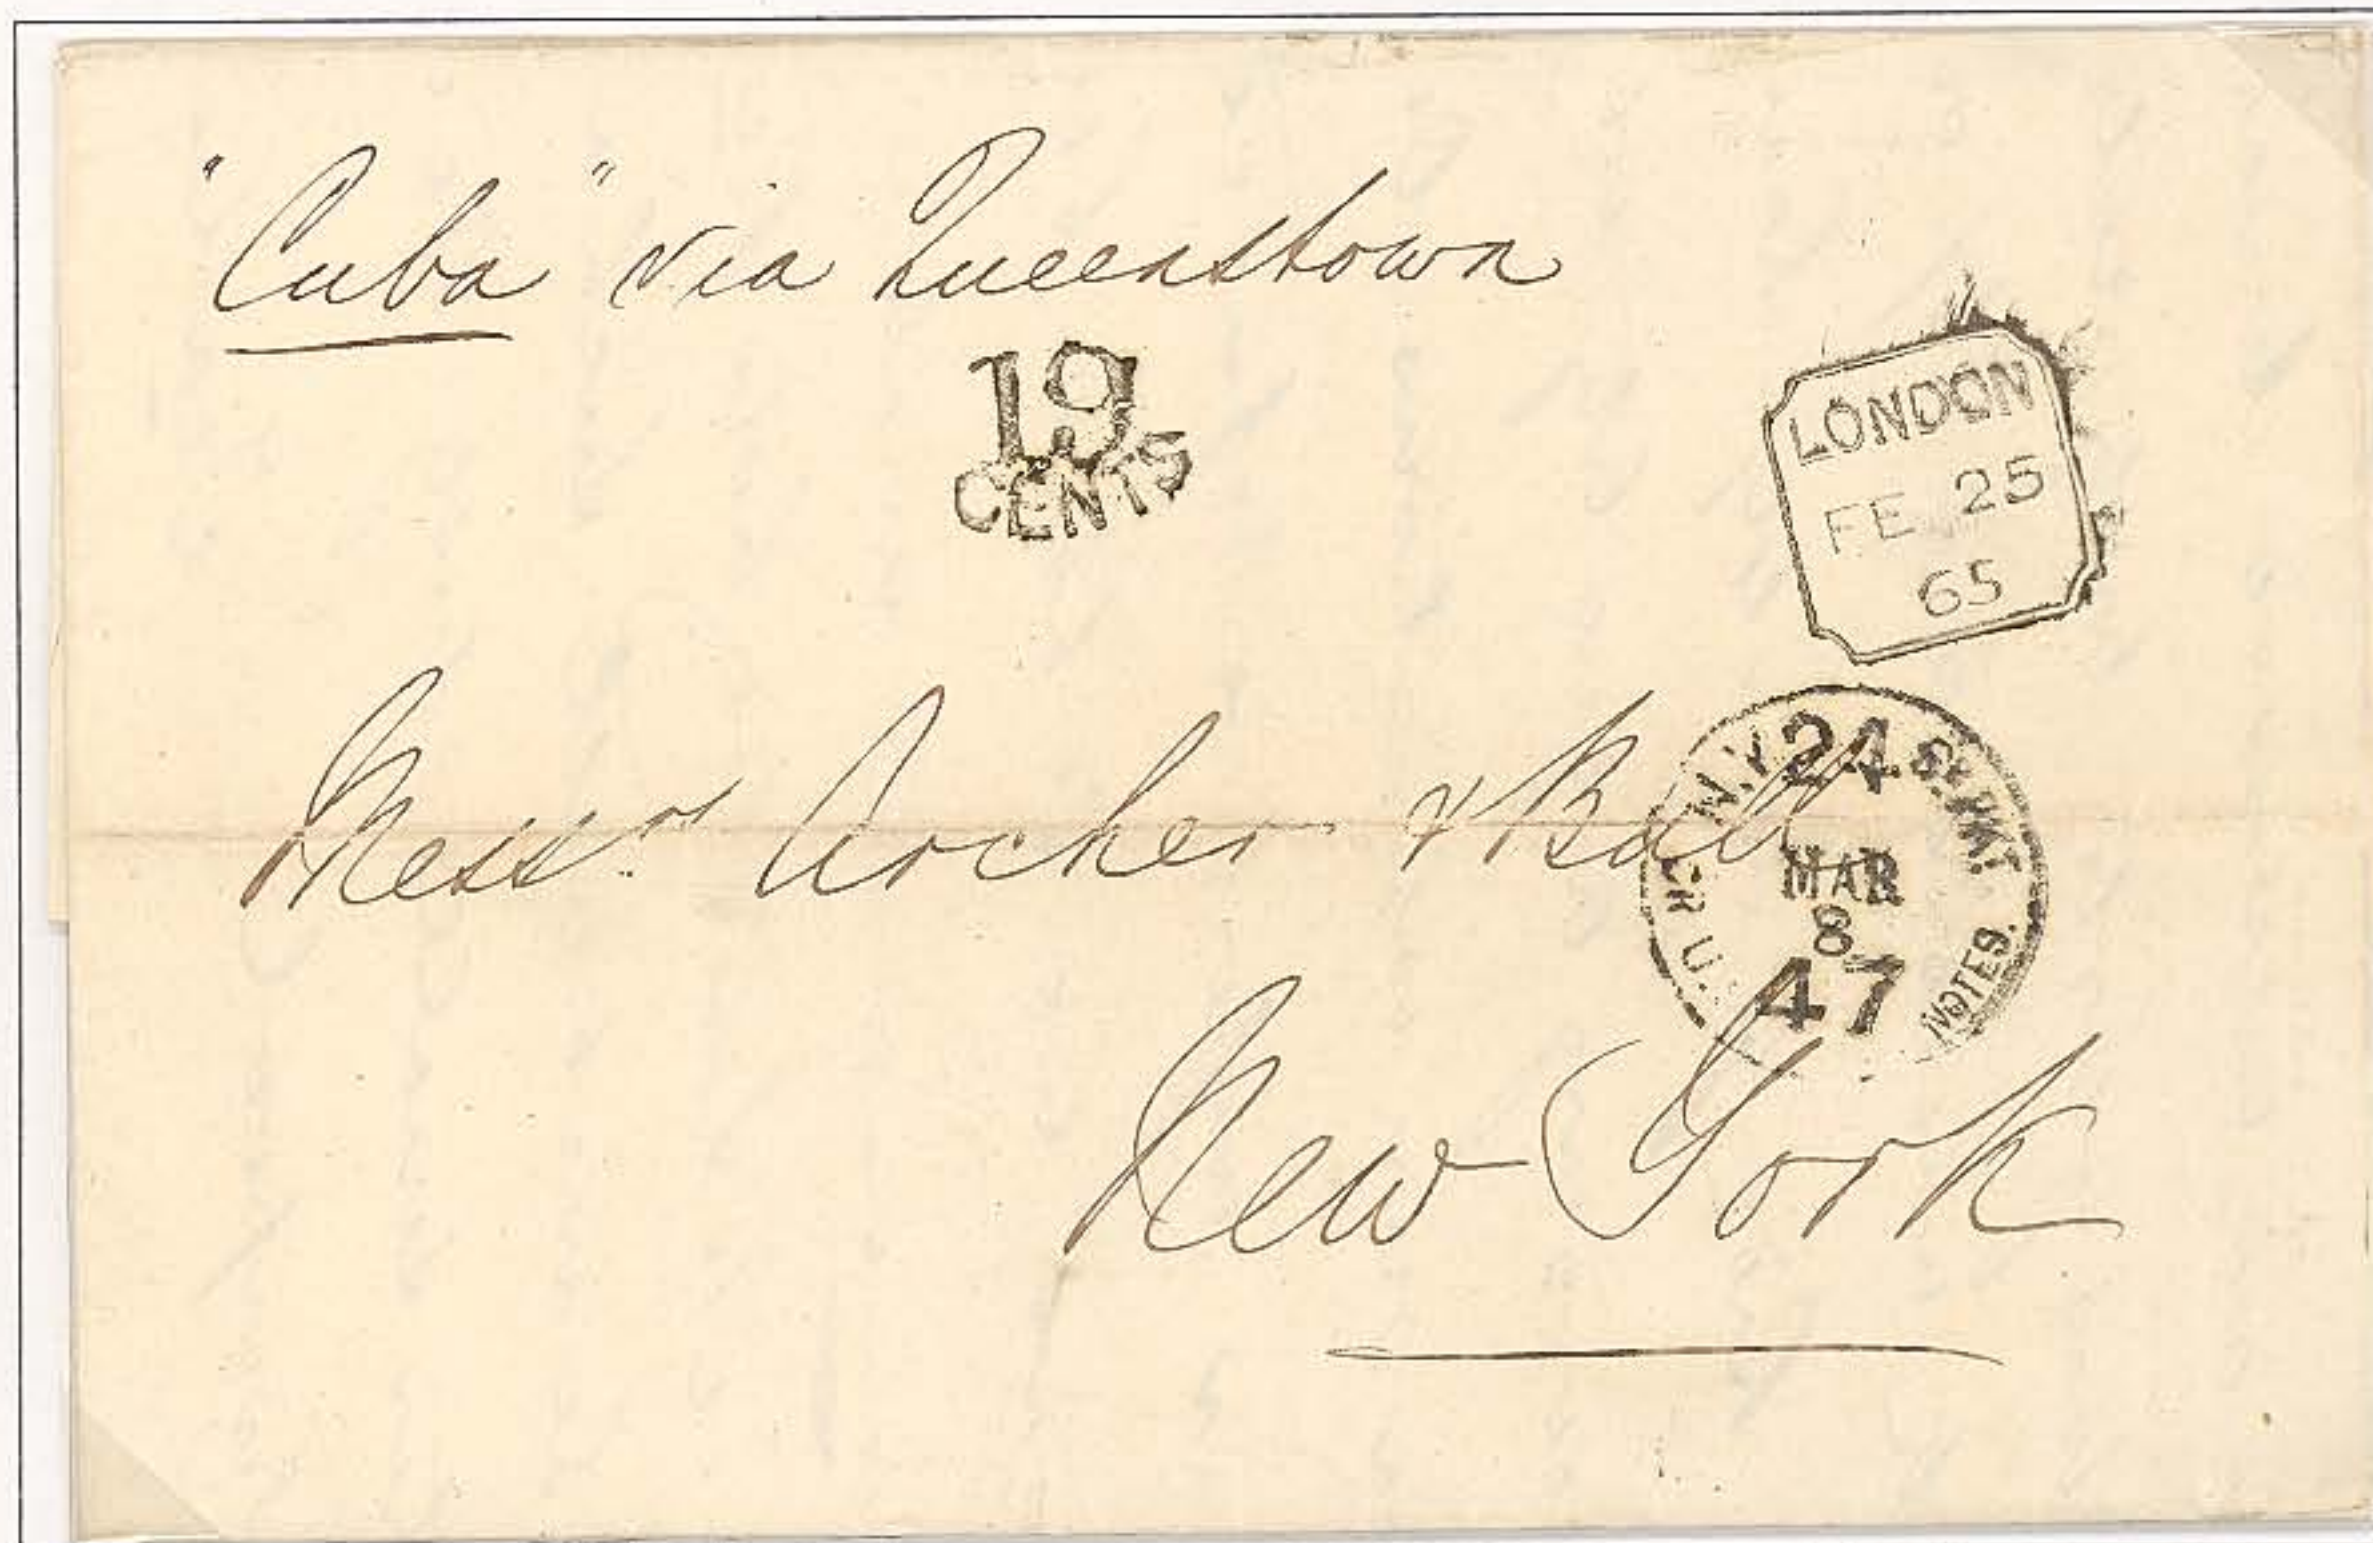 "Cuba" via Queenstown
19
CENTS
LONDON
FE 25
65
Messrs. Archer & Bull
N.Y. 24 BR. PKT.
MAR
8
47
OR U. NOTES.
New York